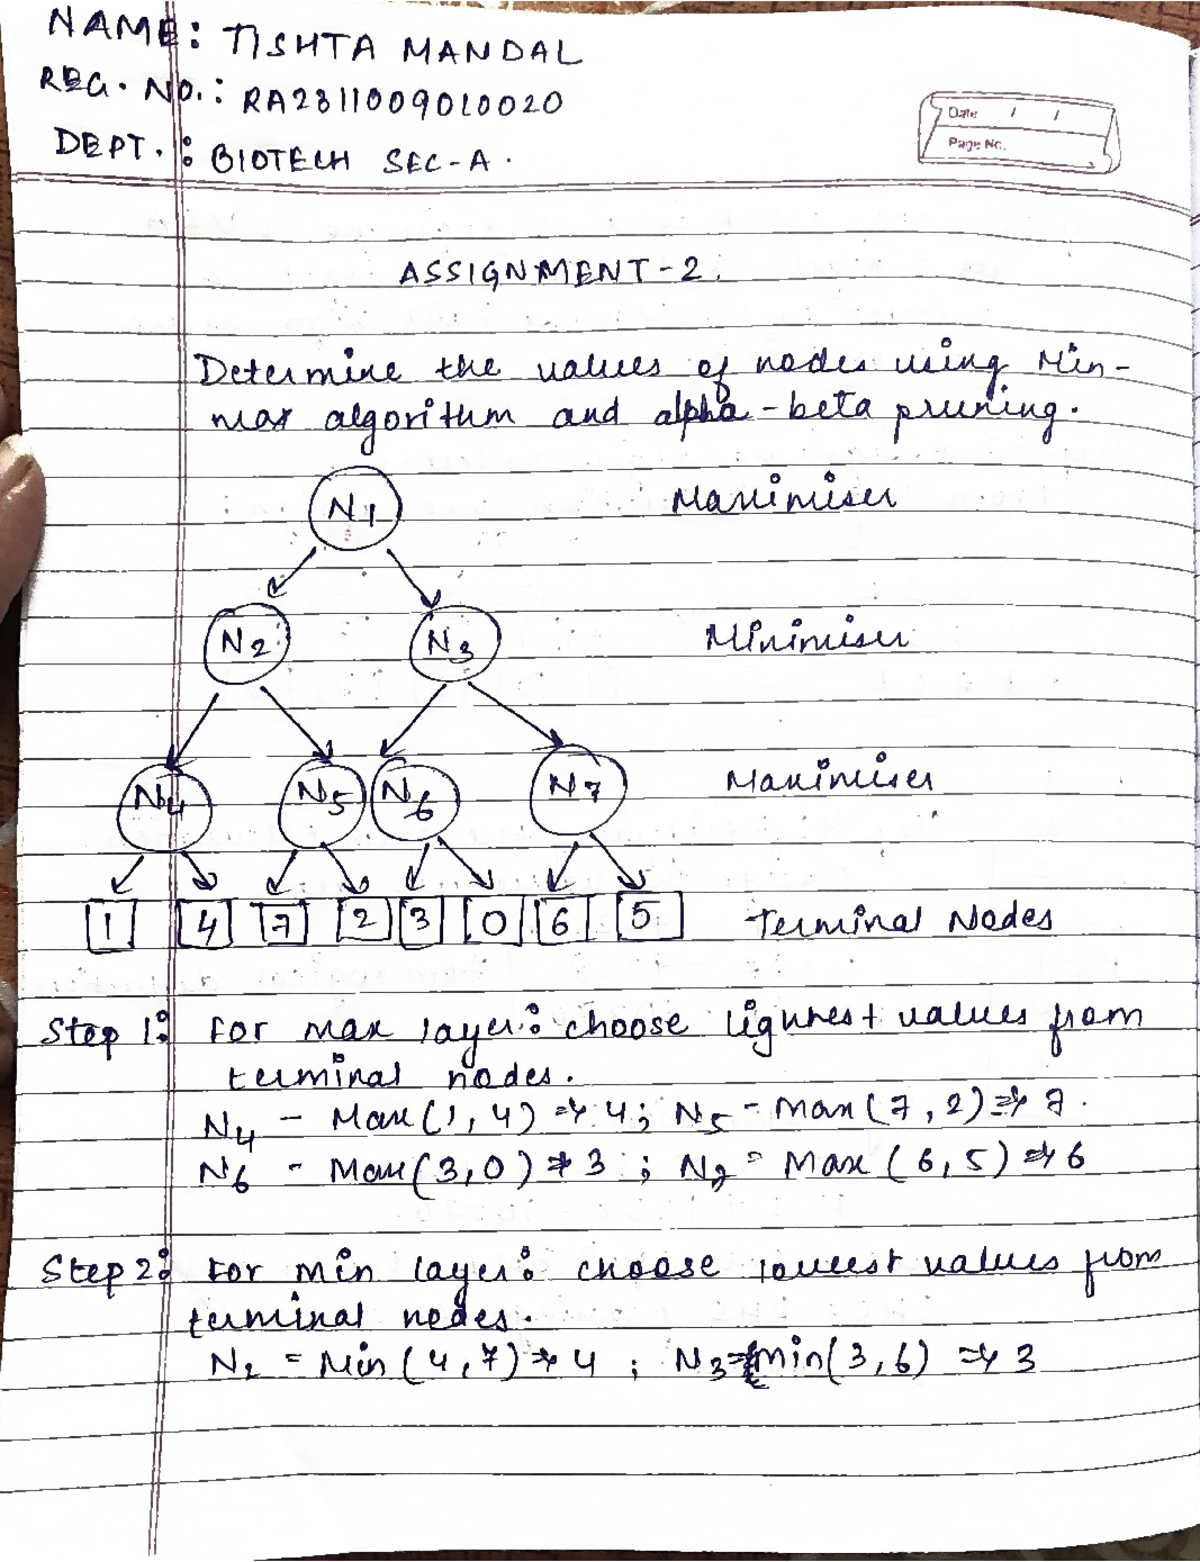 NAME: TISHTA MANDAL
REG. NO.: RA2811009010020
DEPT.: BIOTECH SEC-A.
Date / /
Page No.
ASSIGNMENT-2.
Determine the values of nodes using Min-
max algorithm and alpha-beta pruning.
N1 Maximiser
N2 N3 Minimiser
N4 N5 N6 N7 Maximiser
1 4 7 2 3 0 6 5 Terminal Nodes
Step 1: For max layer: choose highest values from
terminal nodes.
N4 - Max(1, 4) ⇒ 4; N5 - Max(7, 2) ⇒ 7.
N6 - Max(3, 0) ⇒ 3 ; N7 = Max (6, 5) ⇒ 6
Step 2: For min layer: choose lowest values from
terminal nodes.
N2 = Min (4, 7) ⇒ 4 ; N3 = min(3, 6) ⇒ 3